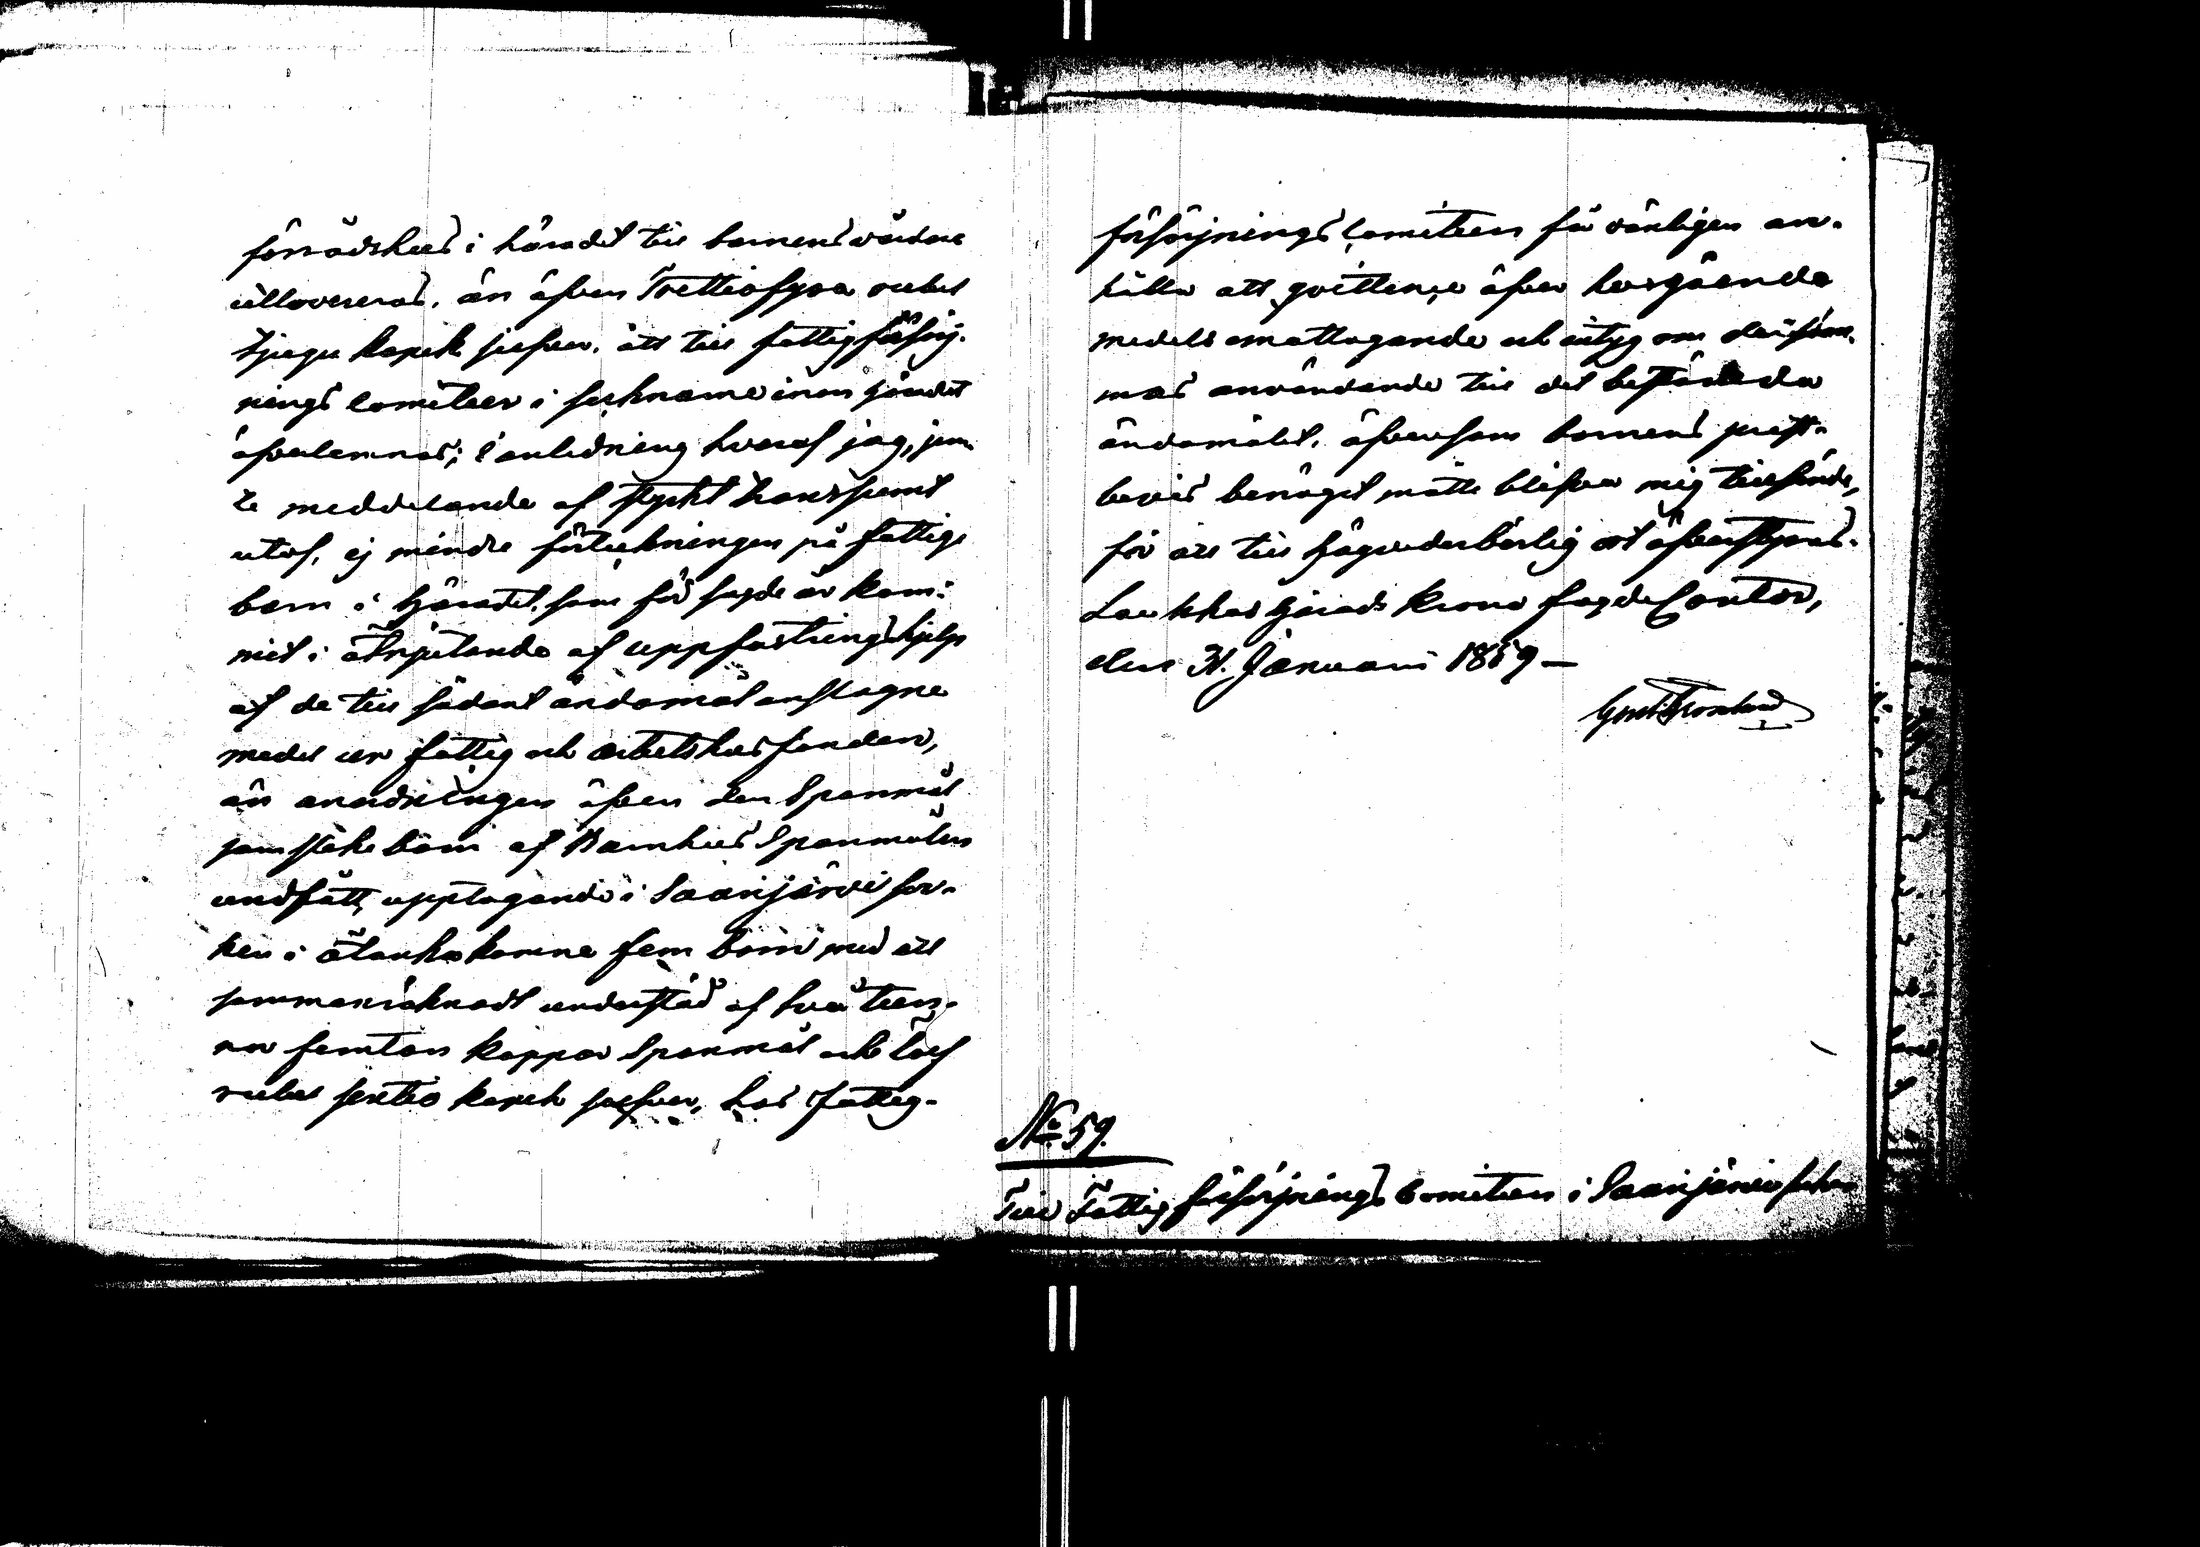 förrådshus i häradet till barnens vårdare
utlevereras, än äfven Trettiofyra rubel
tjugu kopek silfver, att till fattigförsörj-
nings Comitéer i socknarne inom Häradet
öfverlemnas; i anledning hvaraf jag, jem-
te meddelande af tryckt transsumt
utaf, ej mindre förteckningen på fattige
barn i Häradet, som för sagde år kom-
mit i åtnjutande af uppfostringshjelp
af de till sådant ändamål anslagne
medel ur fattig och arbetshusfonden,
än anordningen öfver den Spanmål
som slike barn af Barnhus Spanmålen
undfått, upptagande i Saarijärvi soc-
ken i åtanka komne fem barn med ett
sammanräknadt understöd af två tun-
nor femton kappar Spanmål och tolf
rubel sextio kopek silfver, hos Fattig-
försörjnings Comitéen får vänligen an-
hålla att qvittence öfver bergående
medels emottagande och intyg om desam-
mas användande till det bestämda
ändamålet, äfvensom barnens prest-
bevis benäget måtte blifva mig tillsände,
för att till Högvederbörlig ort öfverstyras.
Laukkas Härads Krono fogde Contor,
den 31. Januari 1859 —
No 59.
Till Fattigförsörjnings Comitéen i Saarijärvi socken